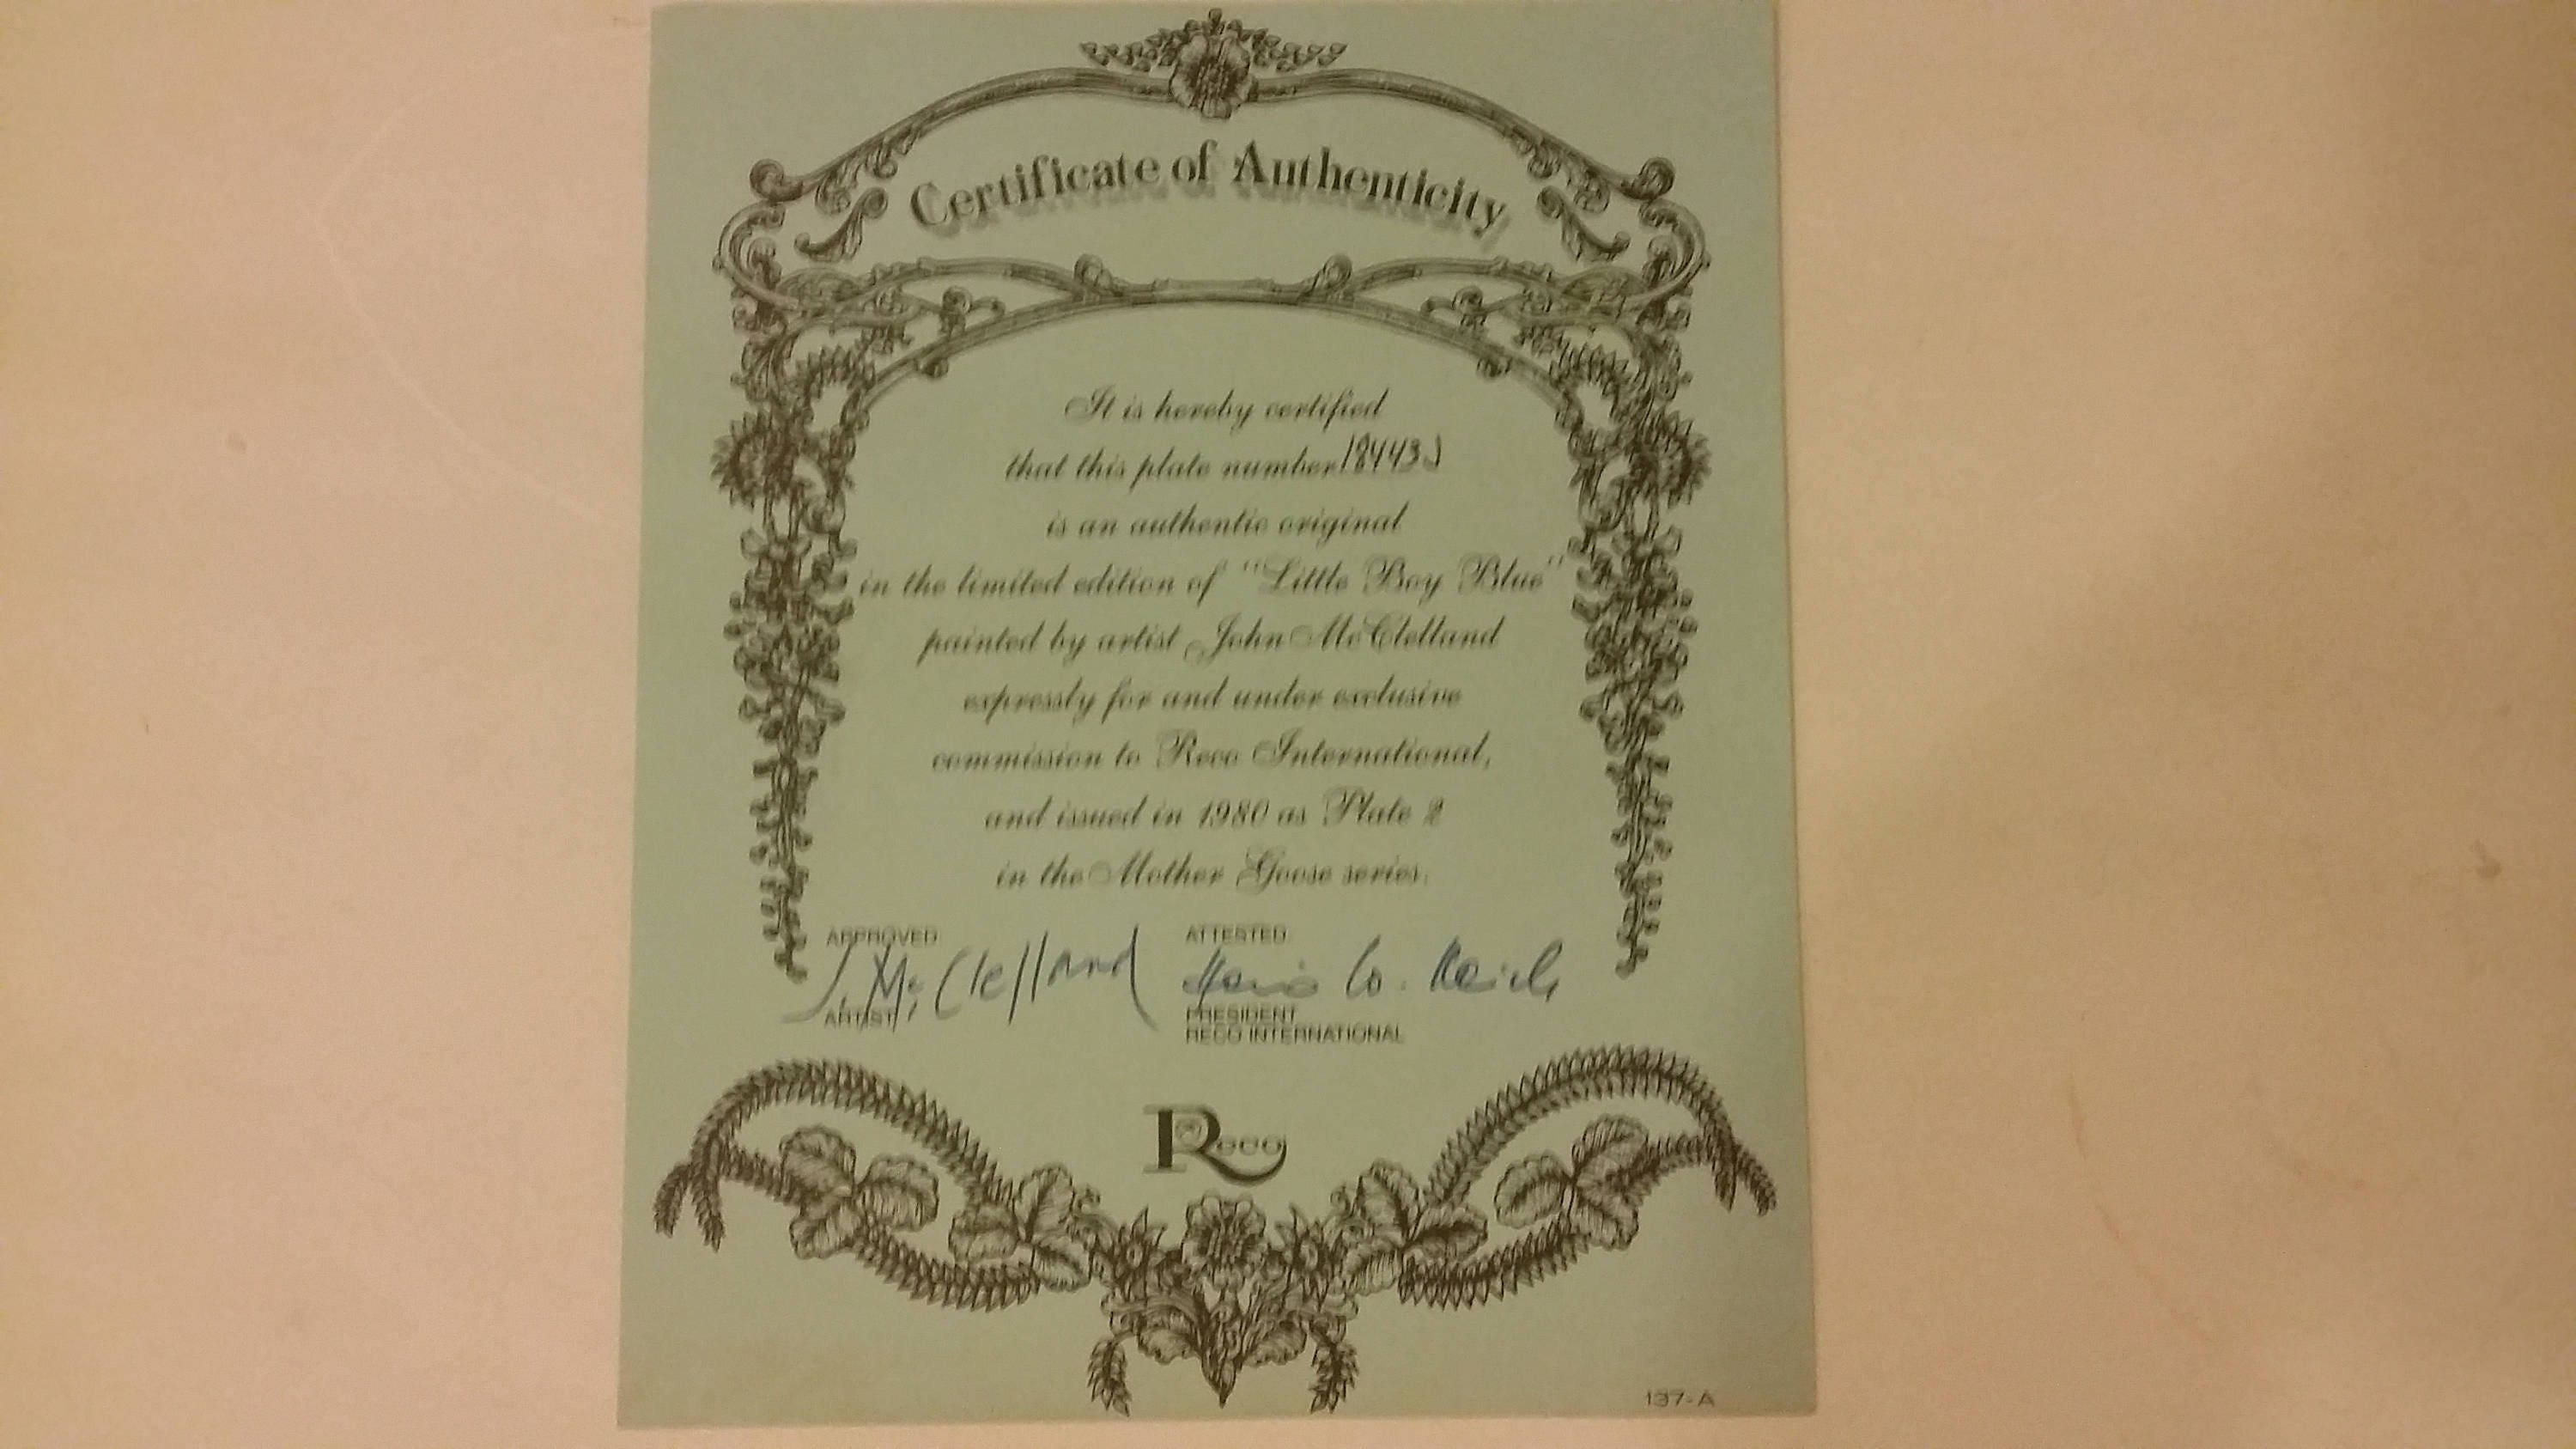 Certificate of Authenticity
It is hereby certified
that this plate number 18443J
is an authentic original
in the limited edition of "Little Boy Blue"
painted by artist John McClelland
expressly for and under exclusive
commission to Reco International,
and issued in 1980 as Plate 2
in the Mother Goose series.
APPROVED
J. McClelland
ARTIST
ATTESTED
PRESIDENT
RECO INTERNATIONAL
Reco
137-A